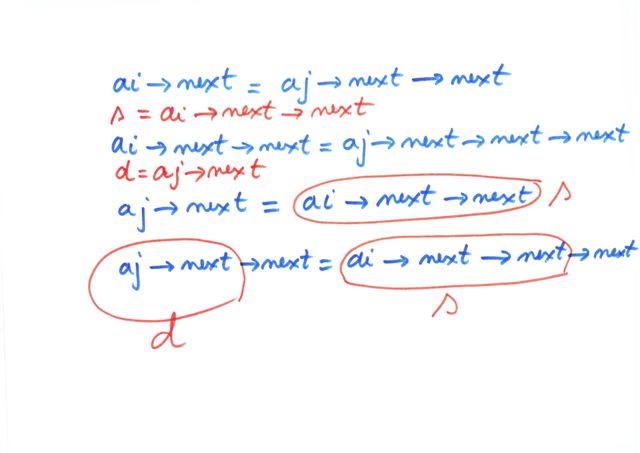 ai → next = aj → next → next
s = ai → next → next
ai → next → next = aj → next → next → next
d = aj → next
aj → next = ai → next → next s
aj → next → next = ai → next → next → next
d s